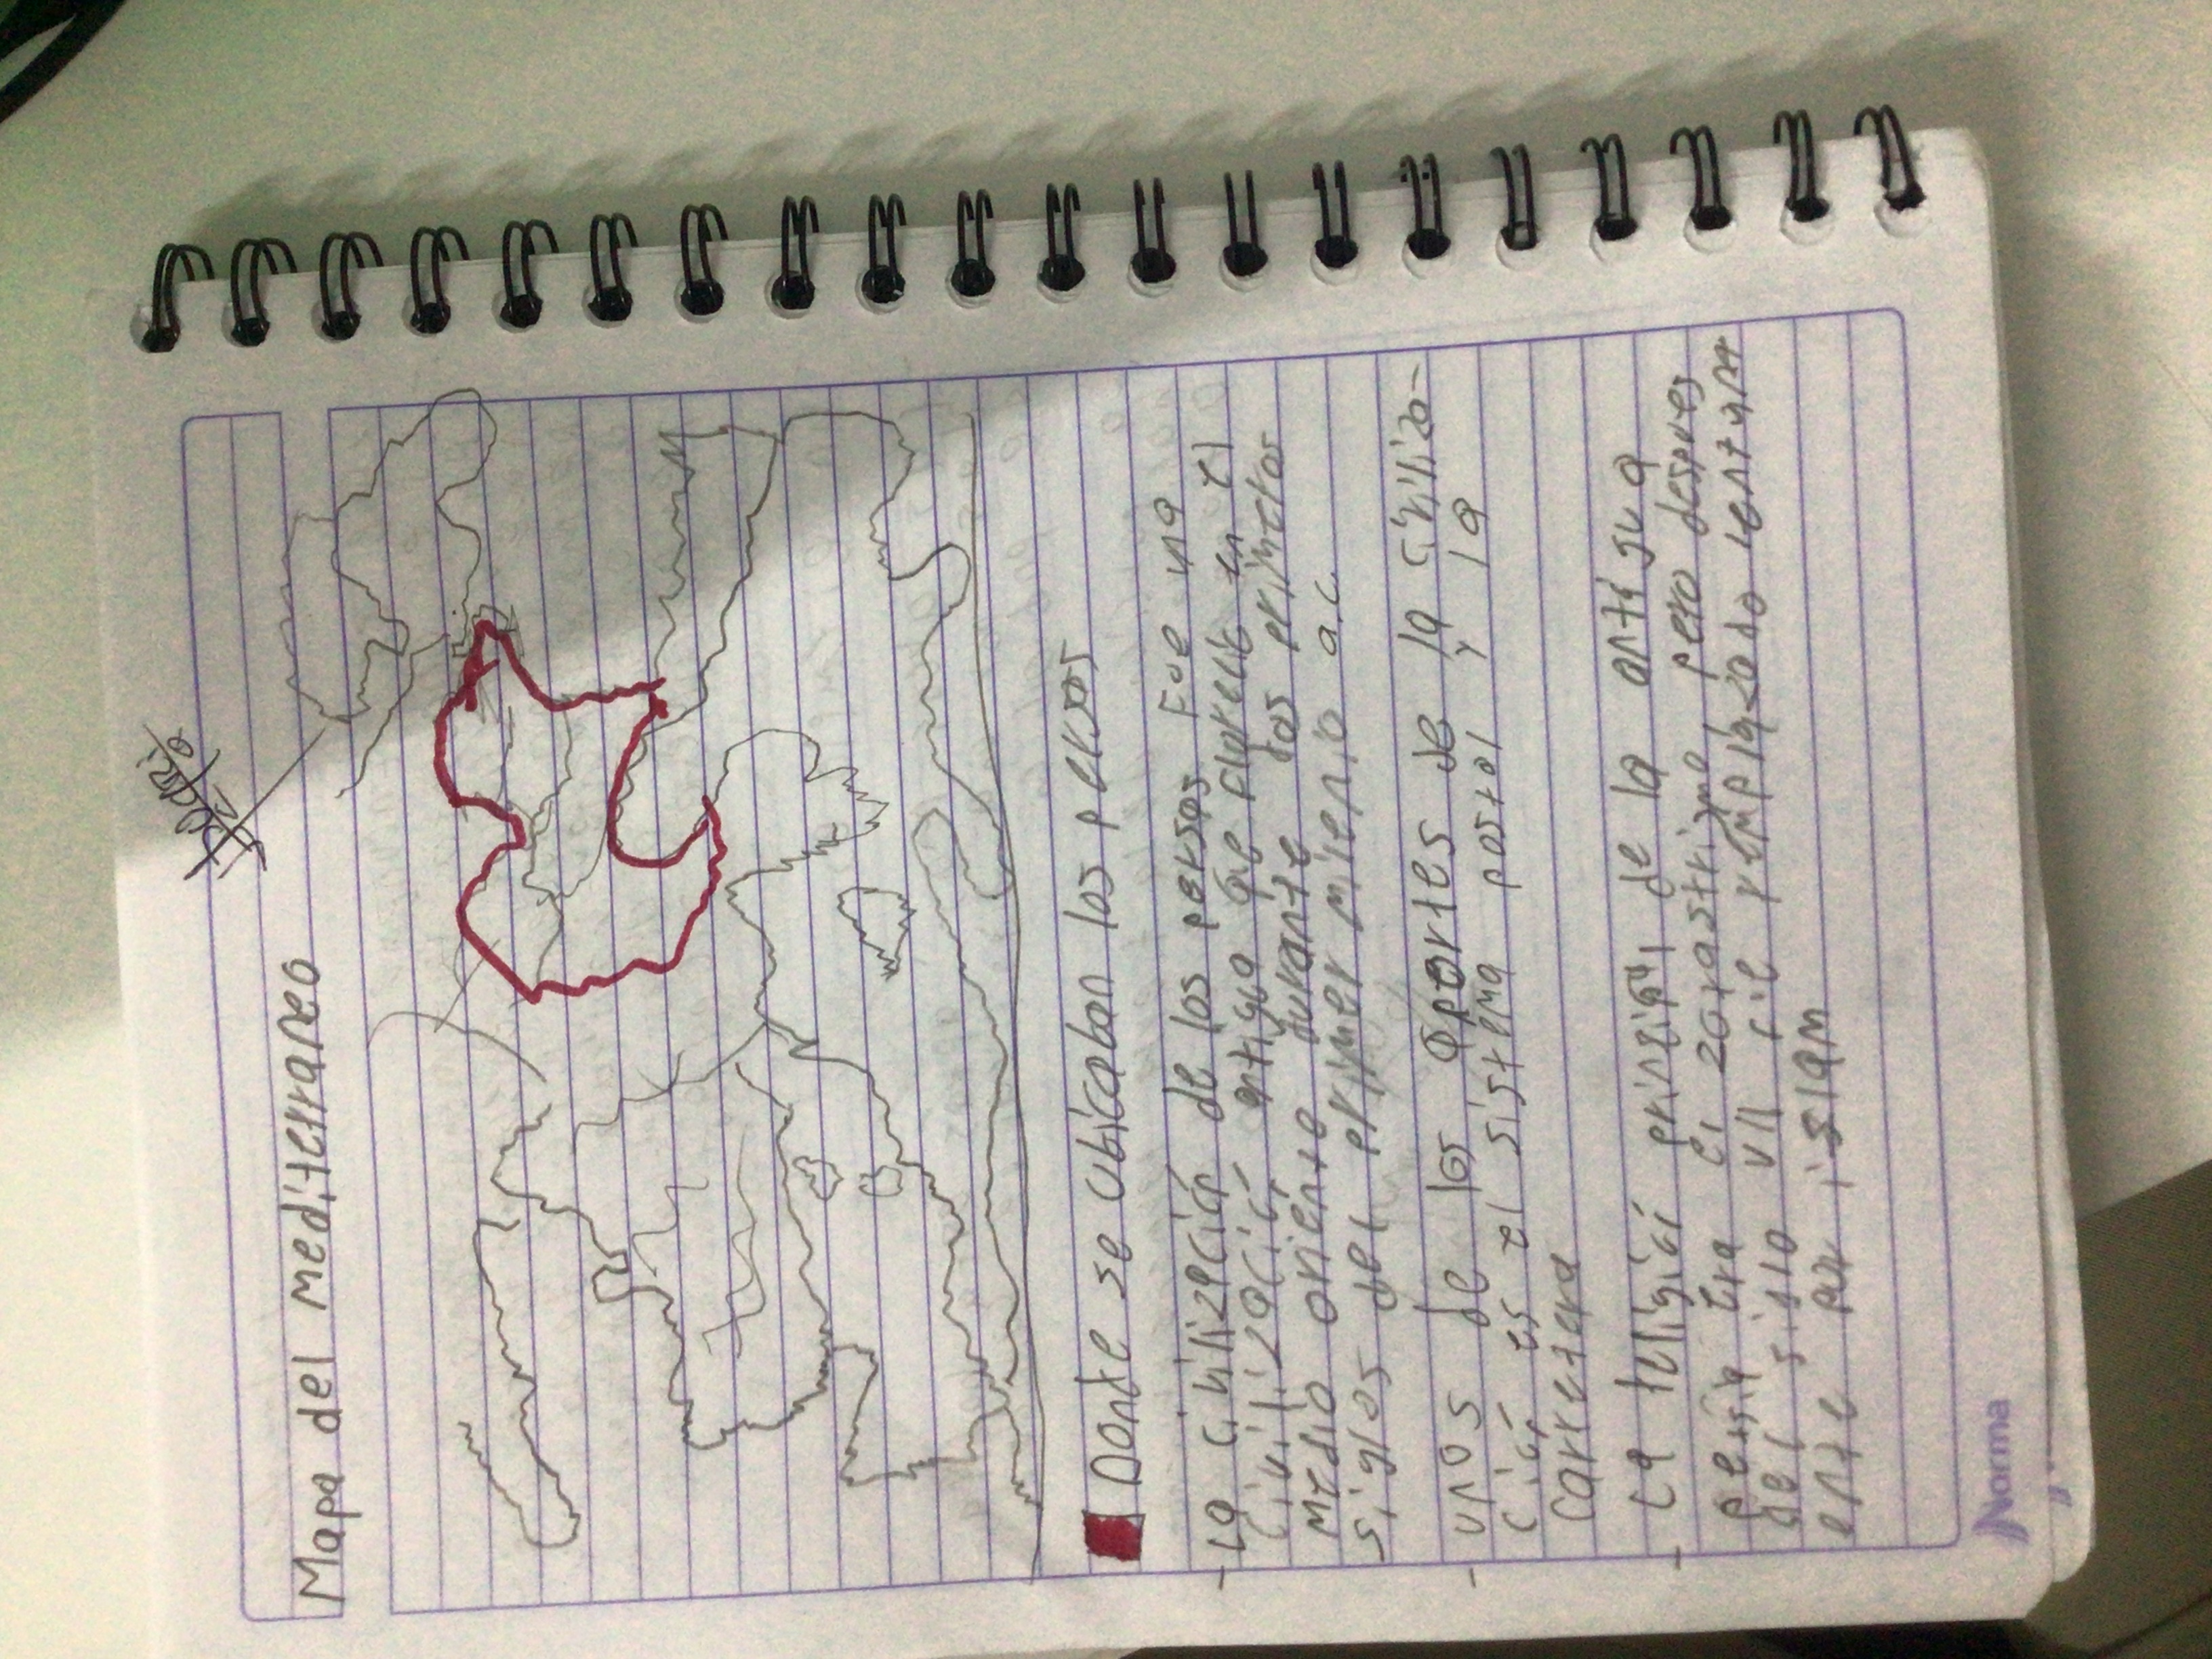 Mapa del mediterraneo
Donde se ubicaban los persas
- La civilización de los persas Fue una
civilizació antigua que florece en el
medio oriente durante los primeros
siglos del primer milenio a.c.
- unos de los aportes de la civiliza-
ció es el sistema postal y la
carretera
- La religió prinzipal de la antigua
persia era el zorastrismo pero despues
del siglo VII fue remplazado
ente por islam
Norma